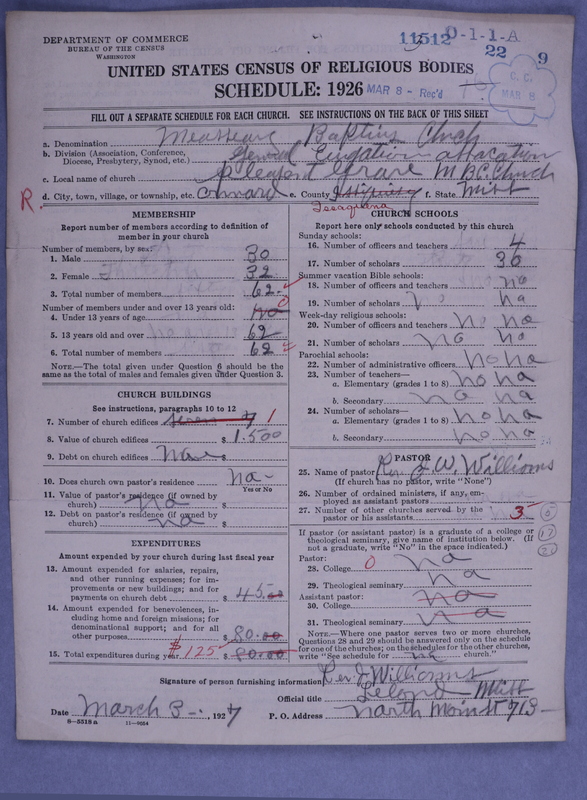 DEPARTMENT OF COMMERCE
BUREAU OF THE CENSUS
WASHINGTON
11512 D-1-1-A
22 9
UNITED STATES CENSUS OF RELIGIOUS BODIES
SCHEDULE: 1926 MAR 8 - Rec'd
C. C.
MAR 8
FILL OUT A SEPARATE SCHEDULE FOR EACH CHURCH. SEE INSTRUCTIONS ON THE BACK OF THIS SHEET
a. Denomination Baptius Chrch
b. Division (Association, Conference, Diocese, Presbytery, Synod, etc.)
c. Local name of church M B C Chuch
R d. City, town, village, or township, etc. e. County Issaquena f. State Miss
MEMBERSHIP
Report number of members according to definition of member in your church
Number of members, by sex:
1. Male 30
2. Female 32
3. Total number of members 62
Number of members under and over 13 years old:
4. Under 13 years of age no 0
5. 13 years old and over 62
6. Total number of members 62
NOTE.—The total given under Question 6 should be the same as the total of males and females given under Question 3.
CHURCH BUILDINGS
See instructions, paragraphs 10 to 12
7. Number of church edifices 1
8. Value of church edifices $ 1.500
9. Debt on church edifices $
10. Does church own pastor's residence na
Yes or No
11. Value of pastor's residence (if owned by church) na $
12. Debt on pastor's residence (if owned by church) na $
EXPENDITURES
Amount expended by your church during last fiscal year
13. Amount expended for salaries, repairs, and other running expenses; for improvements or new buildings; and for payments on church debt $ 45.00
14. Amount expended for benevolences, including home and foreign missions; for denominational support; and for all other purposes $ 80.00
15. Total expenditures during year $125 $ 80.00
CHURCH SCHOOLS
Report here only schools conducted by this church
Sunday schools:
16. Number of officers and teachers 4
17. Number of scholars 36
Summer vacation Bible schools:
18. Number of officers and teachers na
19. Number of scholars no na
Week-day religious schools:
20. Number of officers and teachers no na
21. Number of scholars no no
Parochial schools:
22. Number of administrative officers no na
23. Number of teachers—
a. Elementary (grades 1 to 8) no na
b. Secondary na na
24. Number of scholars—
a. Elementary (grades 1 to 8) no na
b. Secondary no na
PASTOR
25. Name of pastor Rev J. W. Williams
(If church has no pastor, write "None")
26. Number of ordained ministers, if any, employed as assistant pastors
27. Number of other churches served by the pastor or his assistants 3
If pastor (or assistant pastor) is a graduate of a college or theological seminary, give name of institution below. (If not a graduate, write "No" in the space indicated.)
Pastor:
28. College 0 na
29. Theological seminary na
Assistant pastor:
30. College na
31. Theological seminary na
NOTE.—Where one pastor serves two or more churches, Questions 28 and 29 should be answered only on the schedule for one of the churches; on the schedules for the other churches, write "See schedule for church."
Signature of person furnishing information Rev J Williams
Official title Lelond Miss
Date March 3-, 1927 P. O. Address North Main St 713
8-5518a 11-9054